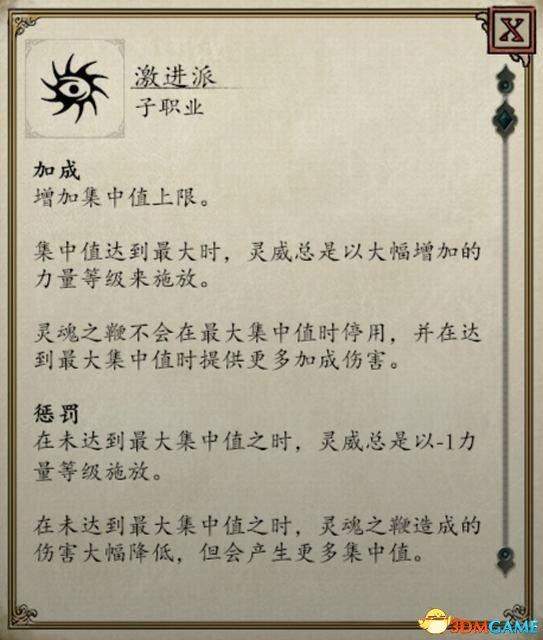 激进派
子职业
加成
增加集中值上限。
集中值达到最大时，灵威总是以大幅增加的
力量等级来施放。
灵魂之鞭不会在最大集中值时停用，并在达
到最大集中值时提供更多加成伤害。
惩罚
在未达到最大集中值之时，灵威总是以-1力
量等级施放。
在未达到最大集中值之时，灵魂之鞭造成的
伤害大幅降低，但会产生更多集中值。
3DMGAME